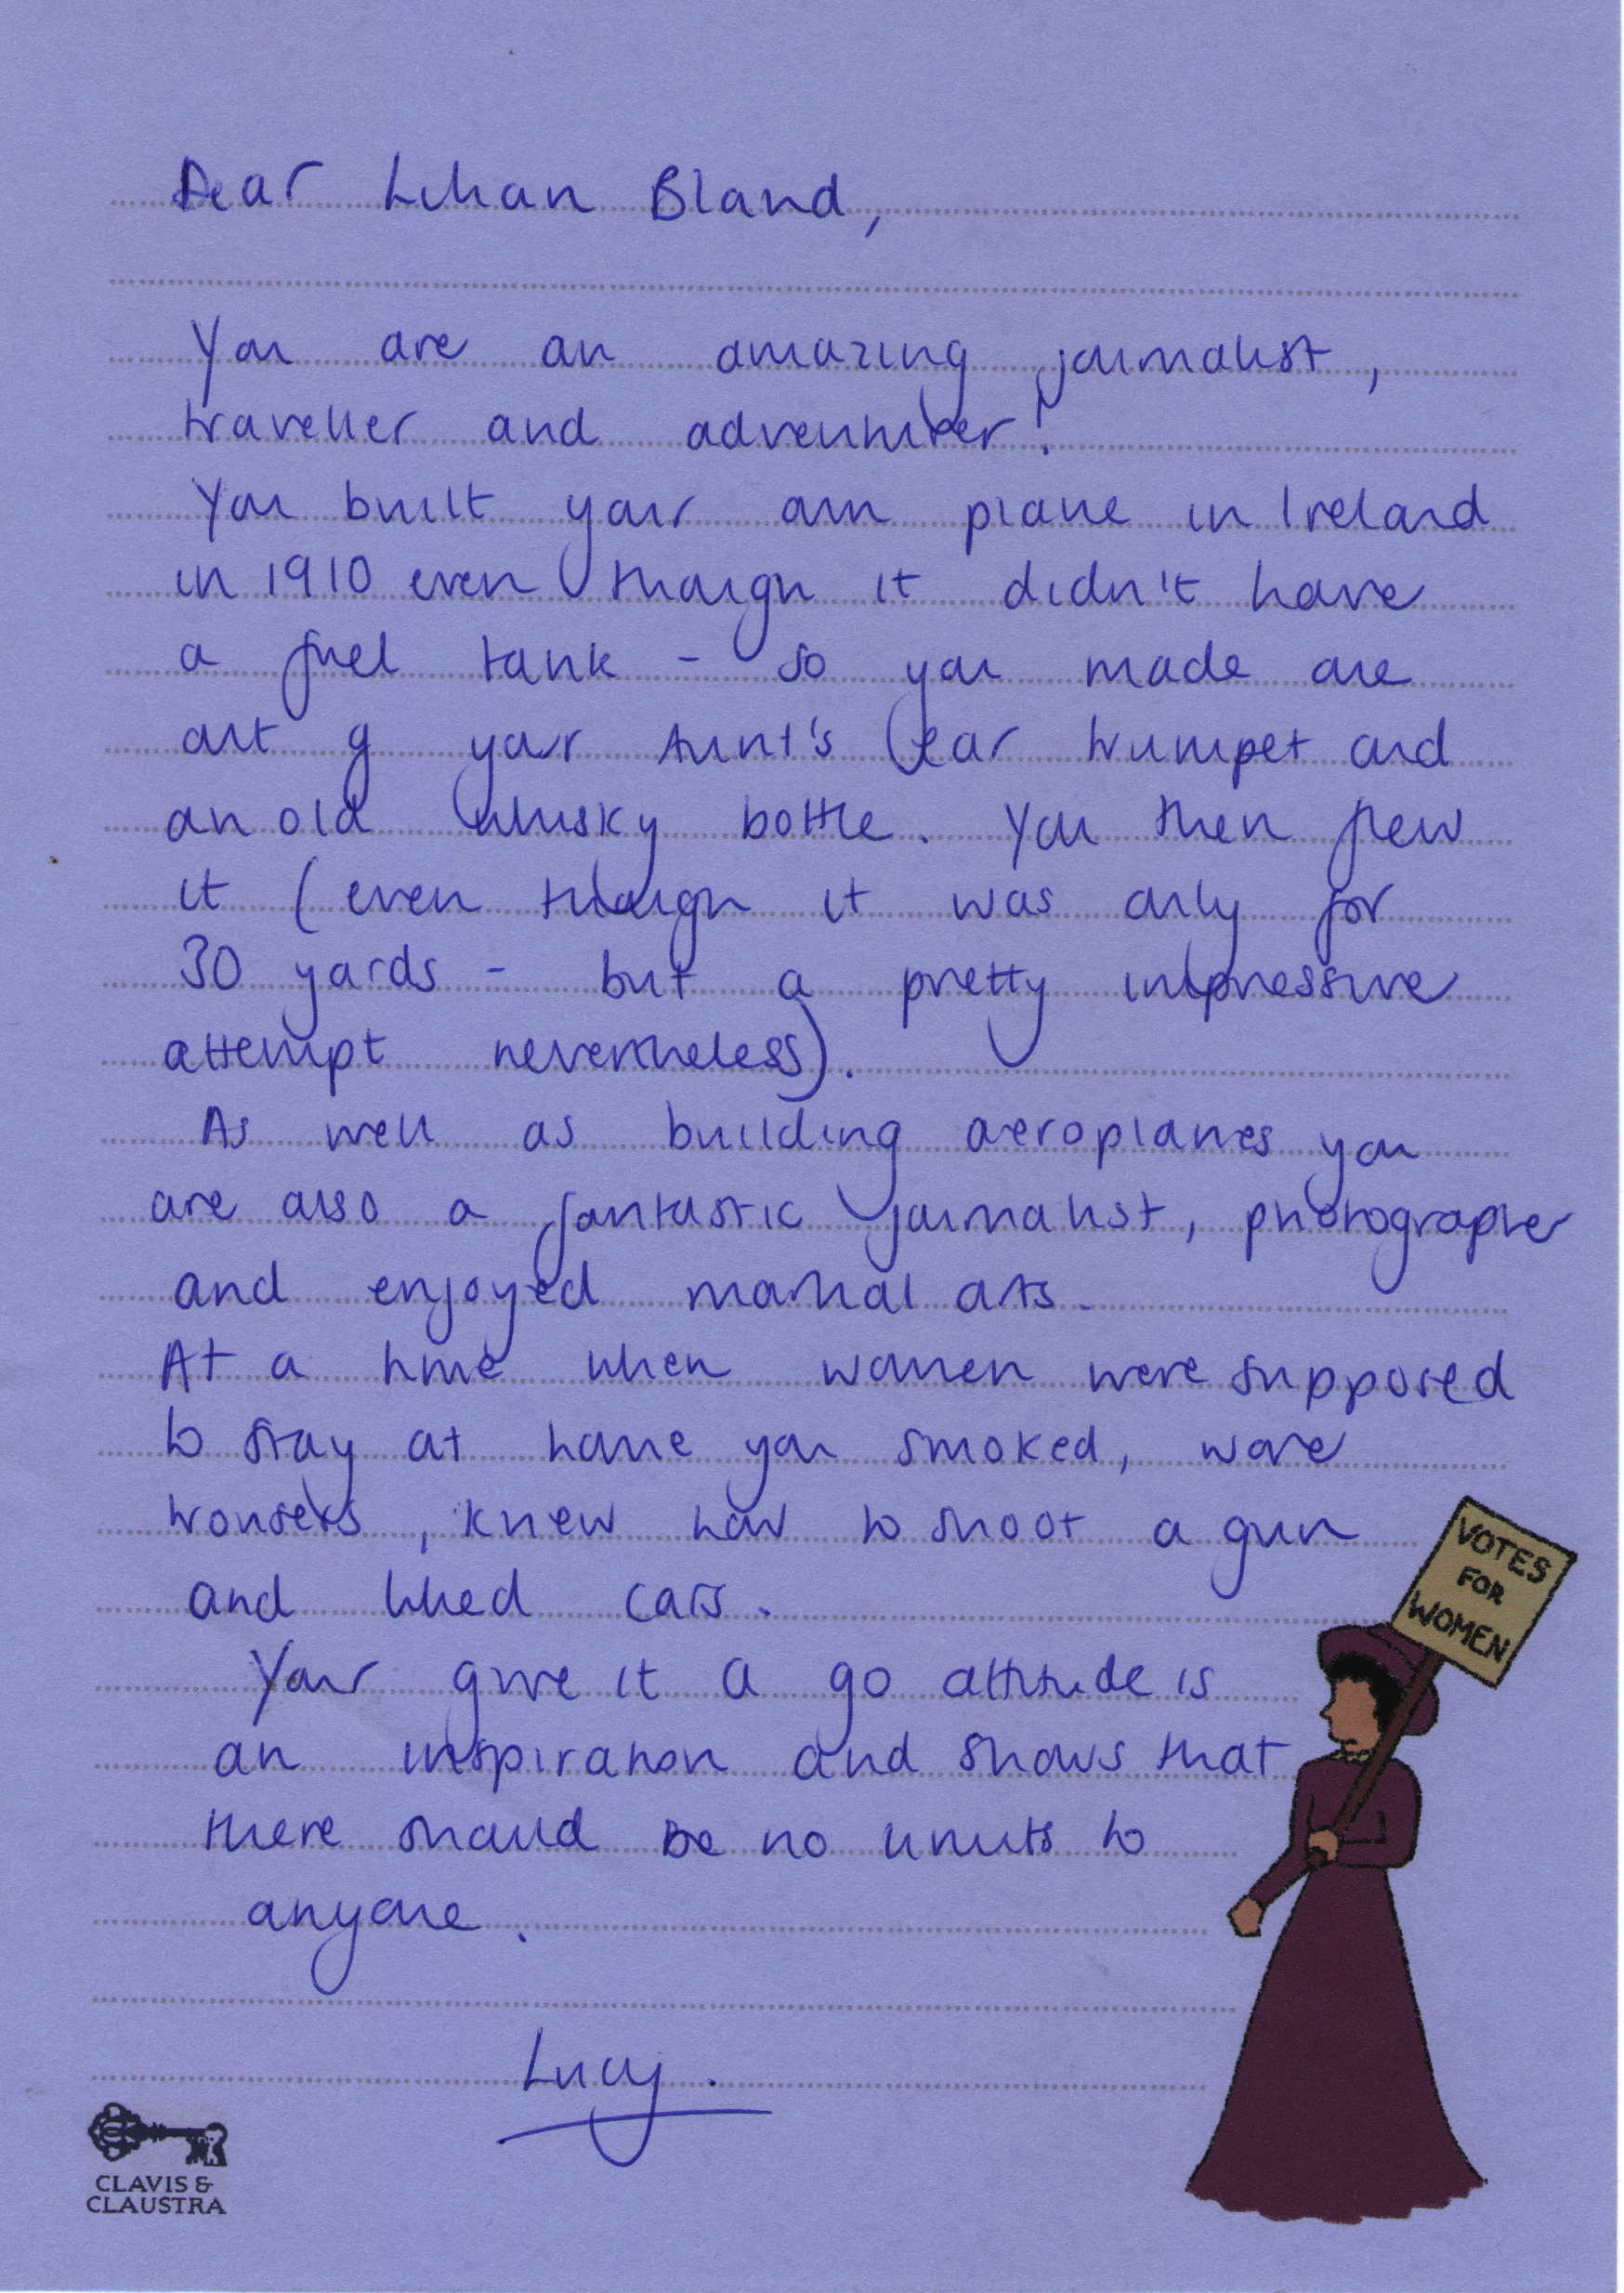 Dear Lilian Bland,
You are an amazing journalist,
traveller and adventurer!
You built your own plane in Ireland
in 1910 even though it didn't have
a fuel tank - so you made one
out of your Aunt's ear trumpet and
an old whisky bottle. You then flew
it (even though it was only for
30 yards - but a pretty impressive
attempt nevertheless).
As well as building aeroplanes you
are also a fantastic journalist, photographer
and enjoyed martial arts.
At a time when women were supposed
to stay at home you smoked, wore
trousers, knew how to shoot a gun
and liked cars.
Your give it a go attitude is
an inspiration and shows that
there should be no limits to
anyone.
Lucy.
VOTES
FOR
WOMEN
CLAVIS &
CLAUSTRA